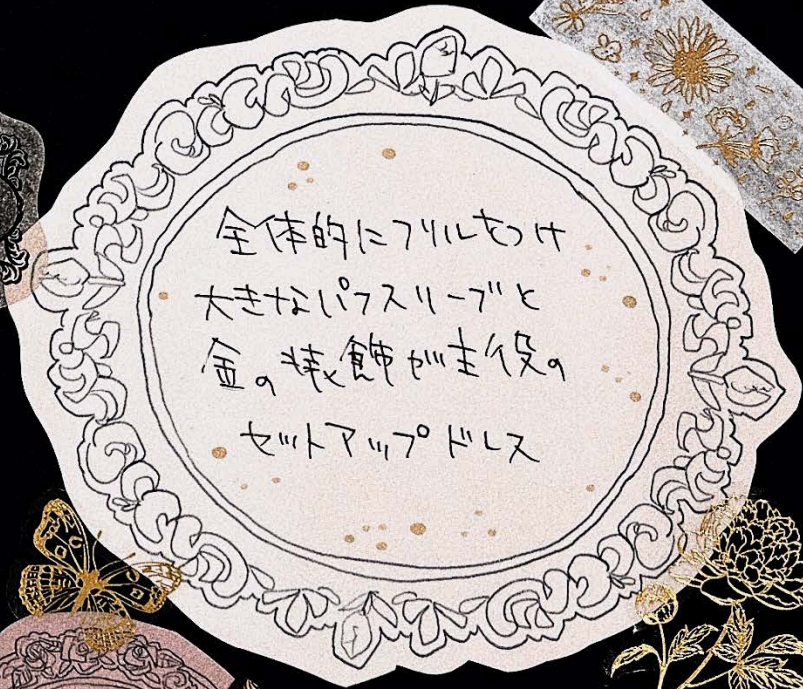 全体的にフリルをつけ
大きなパフスリーブと
金の装飾が主役の
セットアップドレス